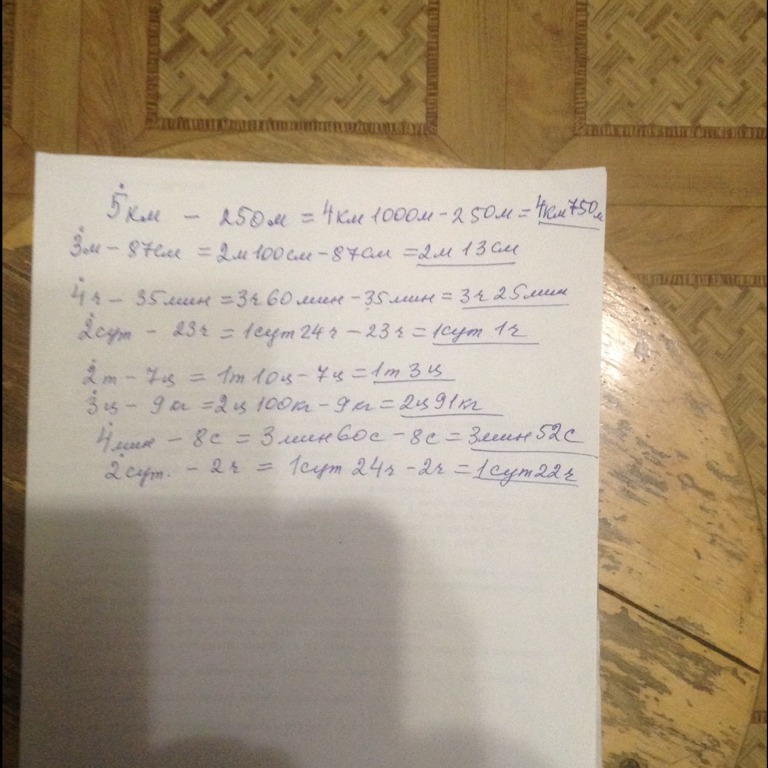 5км - 250м = 4км 1000м - 250м = 4км 750м
3м - 87см = 2м 100см - 87см = 2м 13см
4ч - 35мин = 3ч 60мин - 35мин = 3ч 25мин
2сут - 23ч = 1сут 24ч - 23ч = 1сут 1ч
2т - 7ц = 1т 10ц - 7ц = 1т 3ц
3ц - 9кг = 2ц 100кг - 9кг = 2ц 91кг
4мин - 8с = 3мин 60с - 8с = 3мин 52с
2сут. - 2ч = 1сут 24ч - 2ч = 1сут 22ч